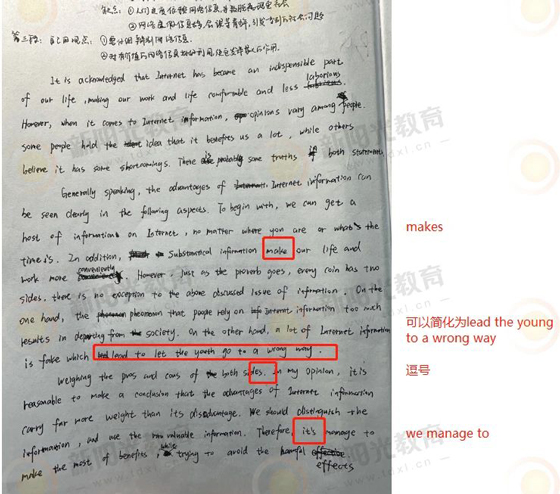 缺点：①人们过度依赖网络信息，导致脱离现实社会
②网络虚假信息
第三段：自己的观点：①要仔细辨别网络信息
②对有价值的网络信息
It is acknowledged that Internet has become an indispensible part
of our life, making our work and life comfortable and less laborious
However, when it comes to Internet information, opinions vary among people.
some people hold the idea that it benefits us a lot, while others
believe it has some shortcomings. There is probably some truths in both statements.
Generally speaking, the advantages of Internet information can
be seen clearly in the following aspects. To begin with, we can get a
host of informations on Internet, no matter where you are or what's the
time is. In addition, Substantical information make our life and
work more conveniently. However, just as the proverb goes, every coin has two
sides, there is no exception to the above discussed issue of information. On the
one hand, the phenomenon that people rely on Internet information too much
results in departing from society. On the other hand, a lot of Internet information
is fake which lead to let the youth go to a wrong way.
Weighing the pros and cons of both sides. in my opinion, it is
reasonable to make a conclusion that the advantages of Internet information
carry far more weight than its disadvantage. We should distinguish the
information, and use the valuable information. Therefore, it's manage to
make the most of benefits, while trying to avoid the harmful effects
makes
可以简化为lead the young
to a wrong way
逗号
we manage to
新阳光教育
www.tdxl.cn